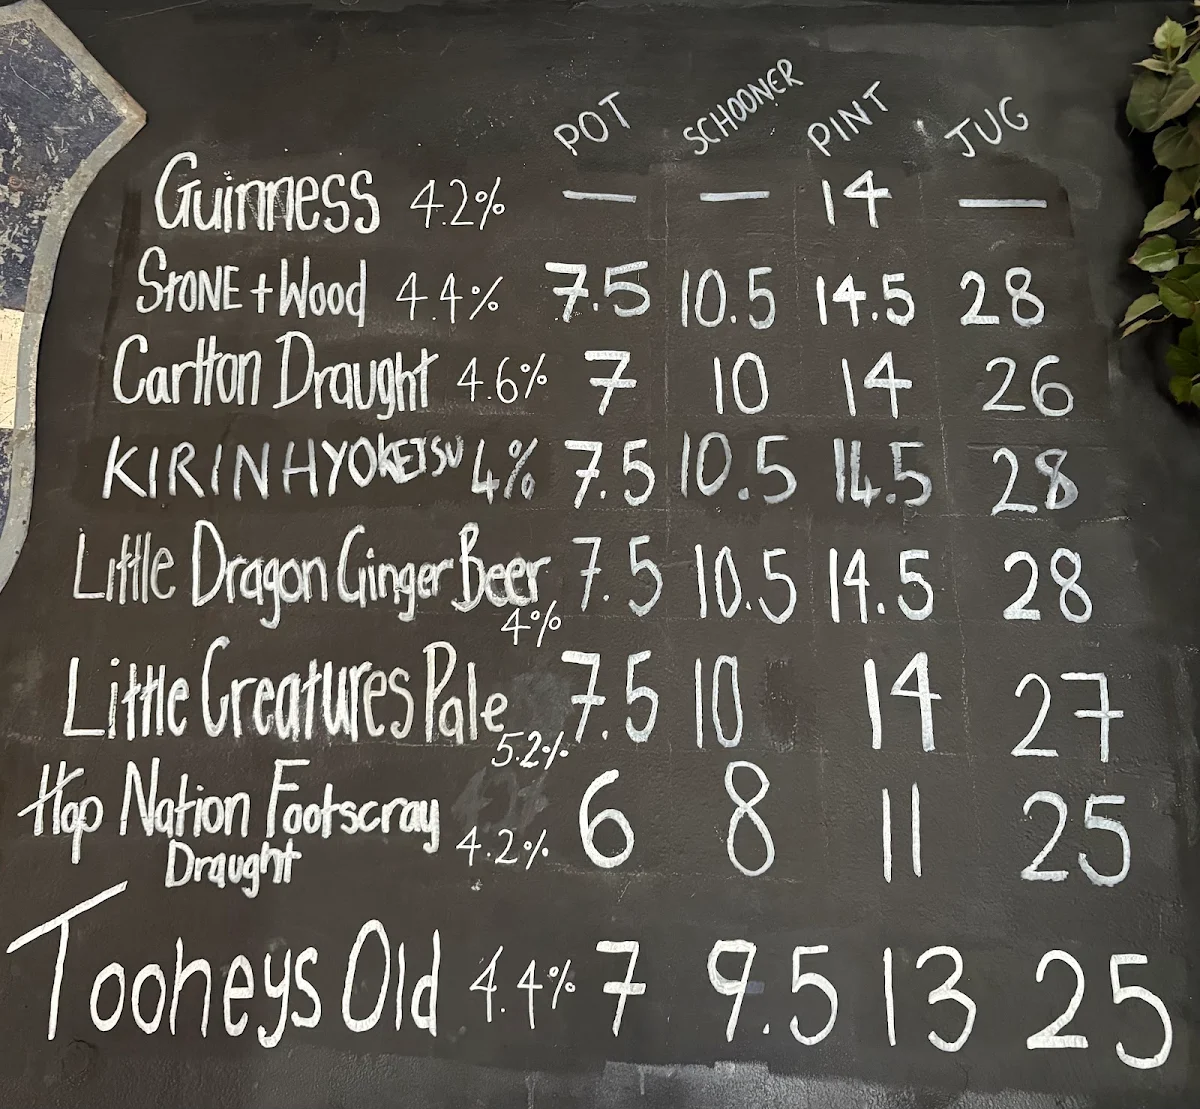 POT SCHOONER PINT JUG
Guinness 4.2% — — 14 —
STONE + Wood 4.4% 7.5 10.5 14.5 28
Carlton Draught 4.6% 7 10 14 26
KIRIN HYOKETSU 4% 7.5 10.5 14.5 28
Little Dragon Ginger Beer 4% 7.5 10.5 14.5 28
Little Creatures Pale 5.2% 7.5 10 14 27
Hop Nation Footscray 4.2% 6 8 11 25
Draught
Tooheys Old 4.4% 7 9.5 13 25